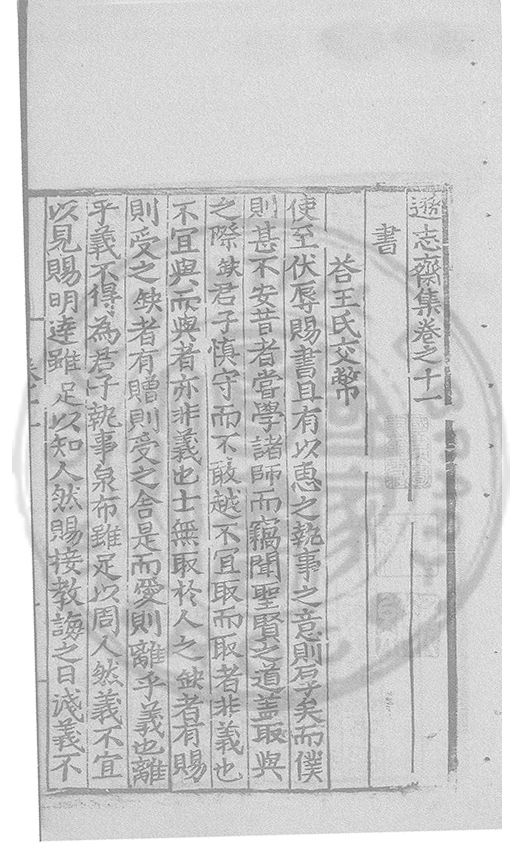 遜志齋集卷之十一
書
荅王氏交幣
使至伏辱賜書且有以惠之執事之意則厚矣而僕
則甚不安昔者嘗學諸師而竊聞聖賢之道蓋取與
之際缺君子慎守而不敢越不宜取而取者非義也
不宜與而與者亦非義也士無取扵人之缺者有賜
則受之缺者有贈則受之舍是而愛則離乎義也離
乎義不得為君子執事泉布雖足以周人然義不宜
以見賜明達雖足以知人然賜接教誨之日淺義不